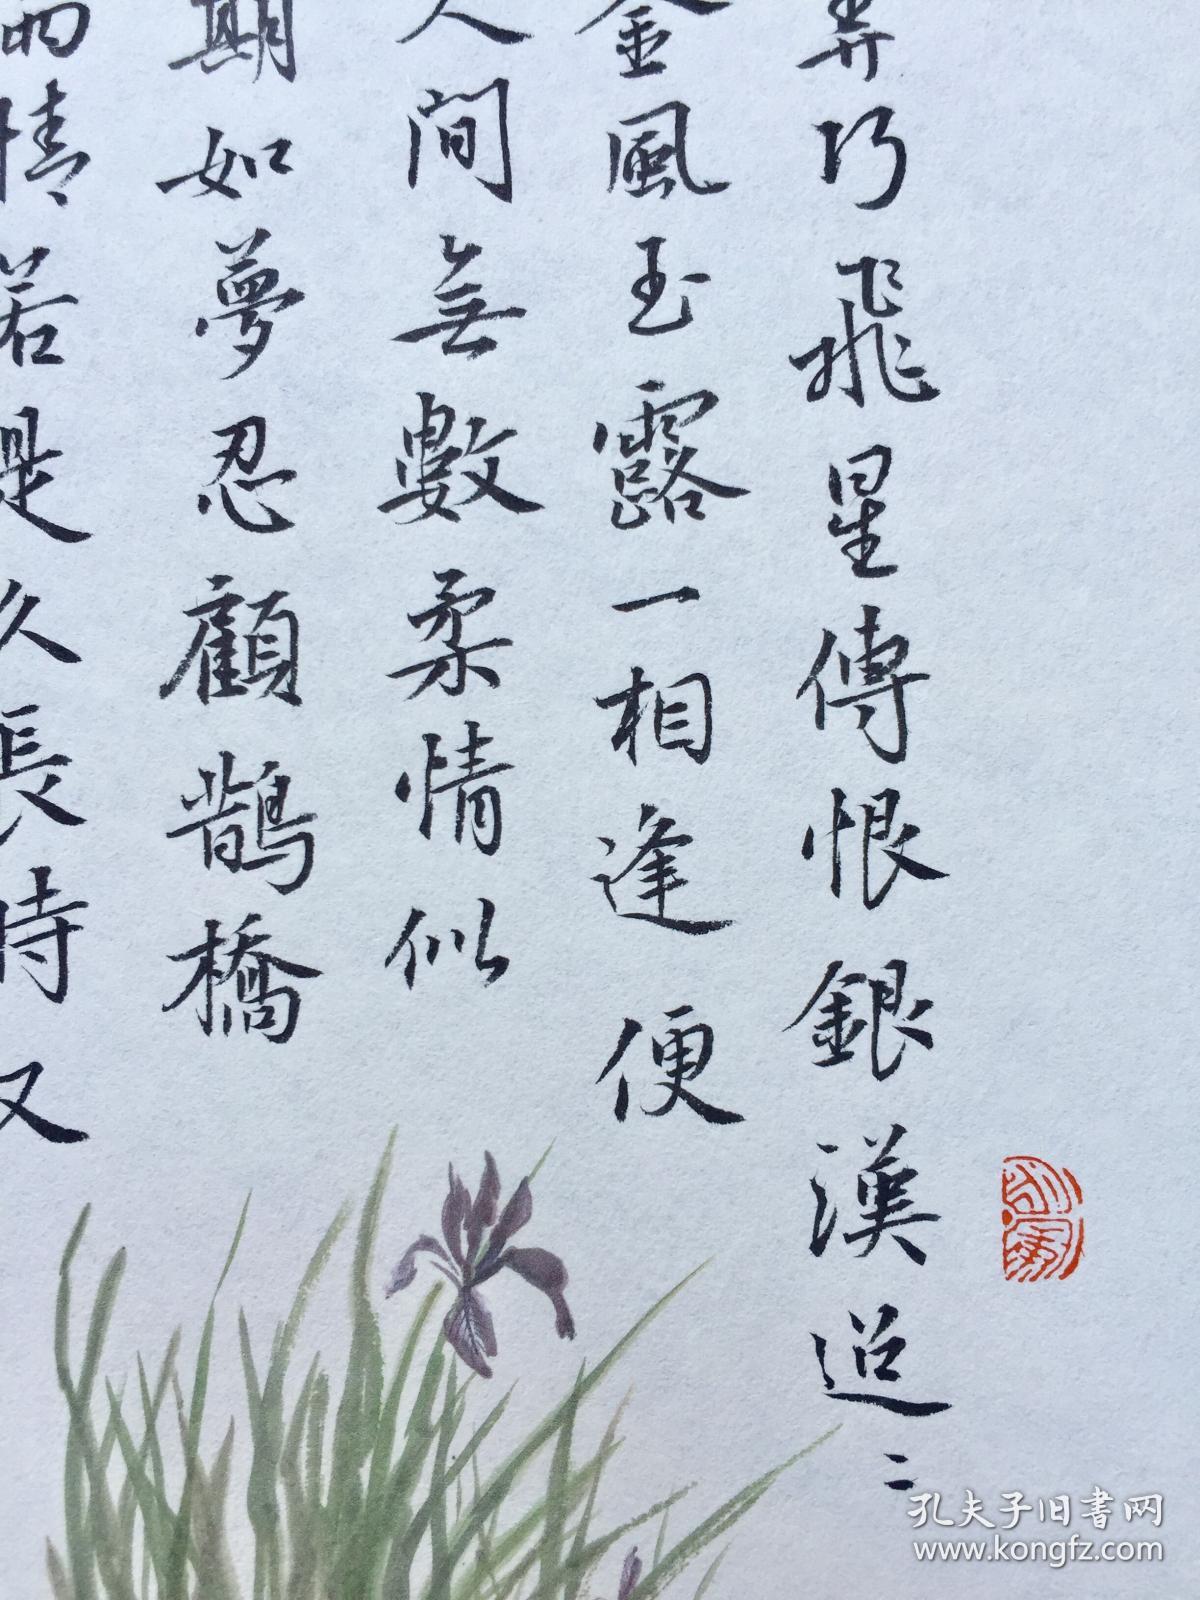 弄巧飛星傳恨銀漢迢〻
金風玉露一相逢便
人間無數柔情似
期如夢忍顧鵲橋
情若是久長時又
孔夫子旧书网
www.kongfz.com